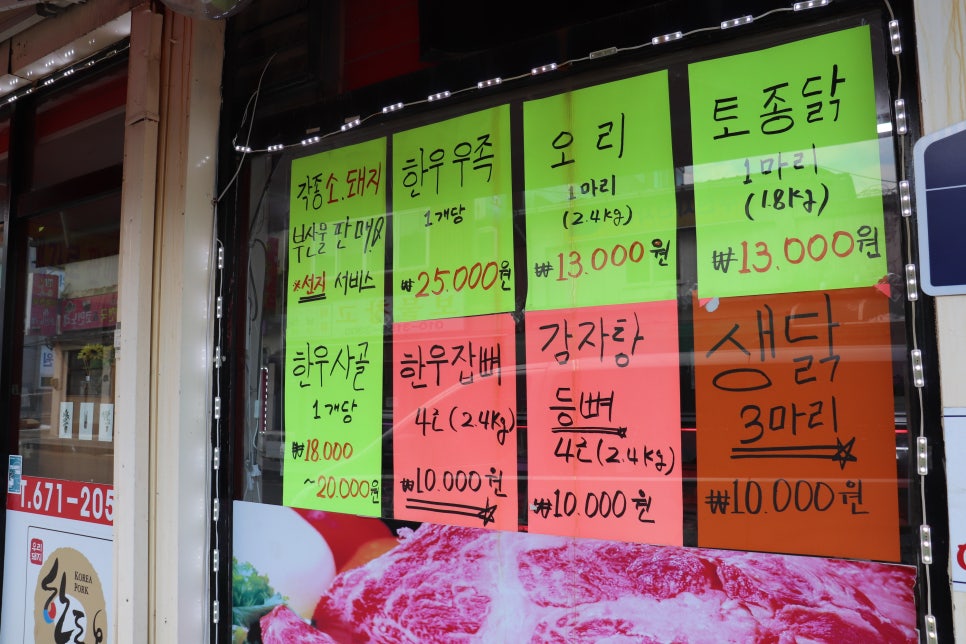 각종 소.돼지
부산물 판매
*선지 서비스
한우우족
1개당
₩25.000원
오리
1마리
(2.4kg)
₩13.000원
토종닭
1마리
(1.8kg)
₩13.000원
한우사골
1개당
₩18.000
~20.000원
한우잡뼈
4근(2.4kg)
₩10.000원
감자탕
등뼈
4근(2.4kg)
₩10.000원
생닭
3마리
₩10.000원
T.671-205
우리돼지
한돈
KOREA
PORK